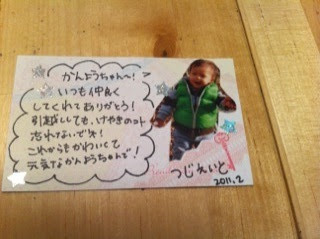 かんようちゃん〜!
いつも仲良く
してくれてありがとう!
引越ししても、けやきのコト
忘れないでネ!
これからもかわいくて
元気なかんようちゃんで!
つじえいと
2011.2